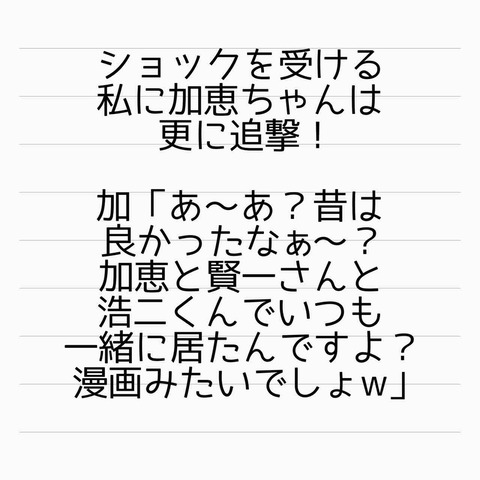 ショックを受ける
私に加恵ちゃんは
更に追撃！
加「あ〜あ？昔は
良かったなぁ〜？
加恵と賢一さんと
浩二くんでいつも
一緒に居たんですよ？
漫画みたいでしょｗ」